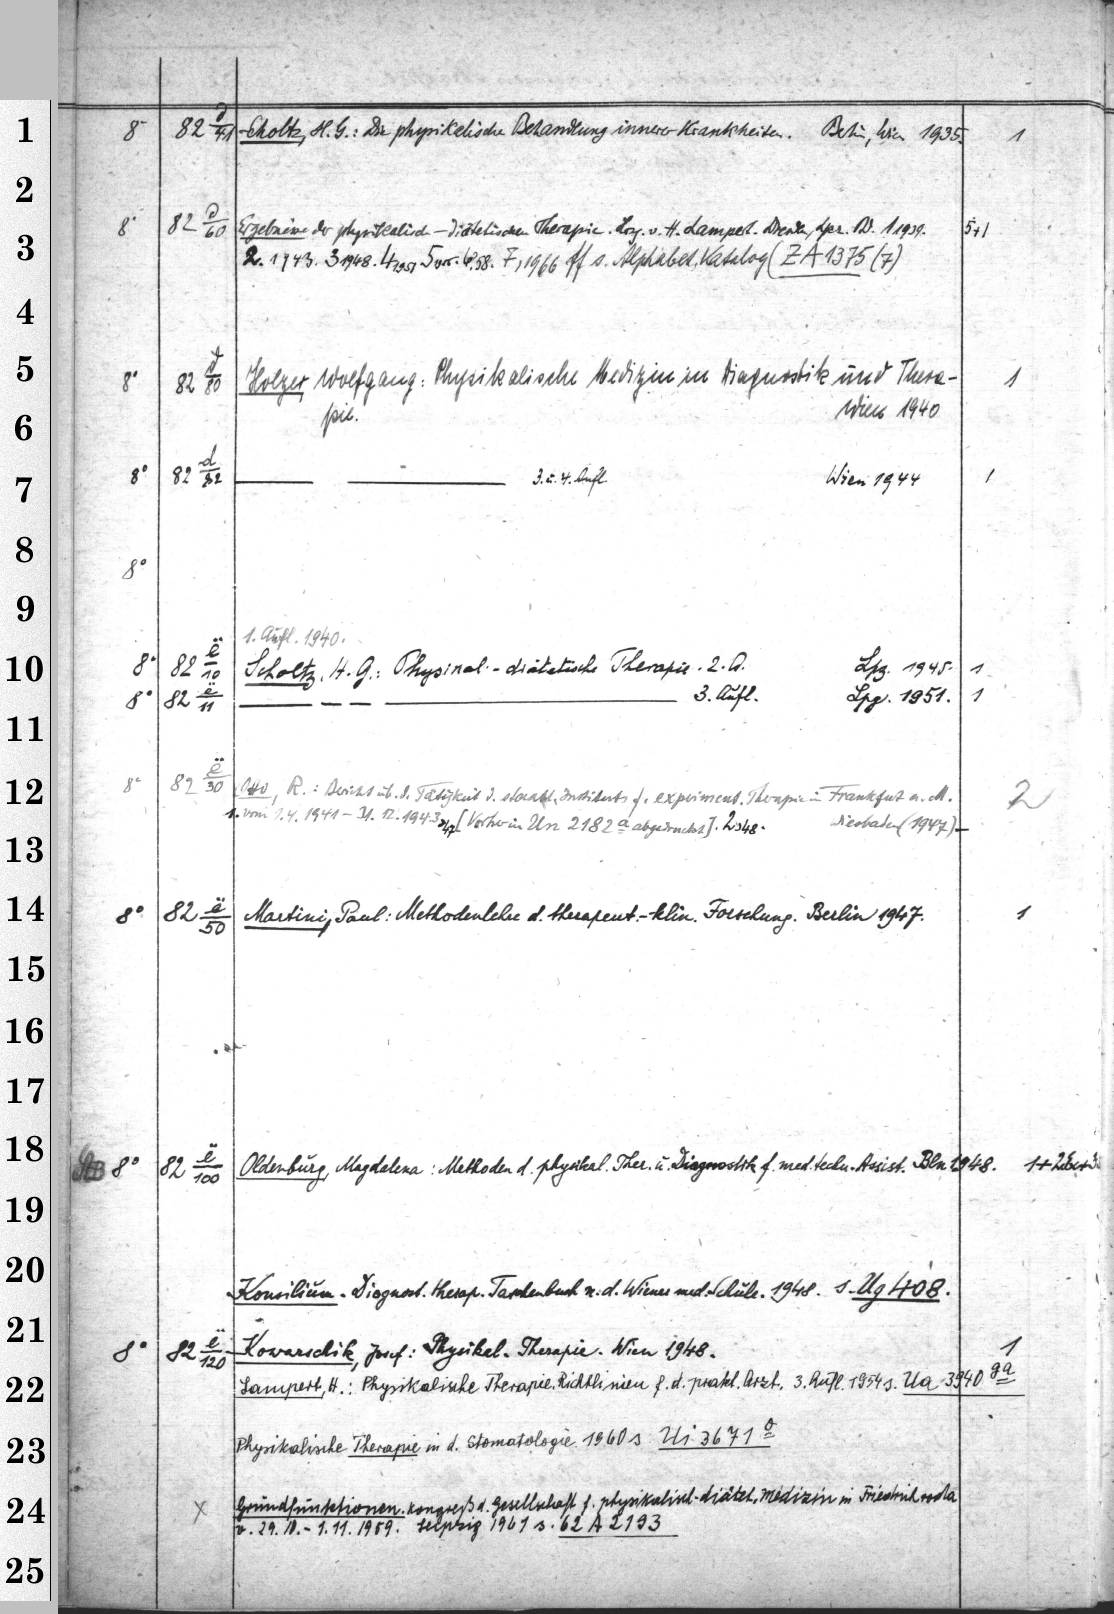 1
8° 82 d/41 Scholtz, H. G.: Die physikalische Behandlung innerer Krankheiten. Berlin, Wien 1935. 1
2
8° 82 d/60 Ergebnisse der physikalisch-diätetischen Therapie. Hrsg. v. H. Lampert. Dresden, Lpz. Bd. 1 1939. 5+1
3
2. 1943. 3 1948. 4 1951 5 6, 58. 7, 1966 ff s. Alphabet. Katalog (ZA 1375 (7)
4
5
8° 82 d/80 Holzer, Wolfgang: Physikalische Medizin in Diagnostik und Thera- 1
6
pie. Wien 1940
7
8° 82 d/82 — — 3. u. 4. Aufl. Wien 1944 1
8
8°
9
1. Aufl. 1940.
10
8° 82 ë/10 Scholtz, H. G.: Physikal.-diätetische Therapie. 2. A. Lpz. 1945. 1
8° 82 ë/11 — — — — 3. Aufl. Lpg. 1951. 1
11
12
8° 82 ë/30 Otto, R.: Bericht üb. d. Tätigkeit d. staatl. Instituts f. experiment. Therapie in Frankfurt a. M. 2
1. vom 1.4. 1941 – 31. 12. 1943 [Vorher in Un 2182 a abgedruckt]. 2 1948. Wiesbaden (1947)
13
14
8° 82 ë/50 Martini, Paul: Methodenlehre d. therapeut.-klin. Forschung. Berlin 1947. 1
15
16
17
18
8° 82 ë/100 Oldenburg, Magdalena: Methoden d. physikal. Ther. u. Diagnostik f. med. techn. Assist. Bln 1948.
19
20
Konsilium. Diagnost. therap. Taschenbuch n. d. Wiener med. Schule. 1948. s. Ug 408.
21
8° 82 ë/120 Kowarschik, Josef: Physikal. Therapie. Wien 1948. 1
22
Lampert, H.: Physikalische Therapie. Richtlinien f. d. prakt. Arzt. 3. Aufl. 1954 s. Ua 3940 ga
23
Physikalische Therapie in d. Stomatologie 1960 s Ui 3671 o
24
x Grundfunktionen. Kongreß d. Gesellschaft f. physikalisch-diätet. Medizin in Friedrichroda
v. 29. 10. – 1. 11. 1959. Leipzig 1961 s. 62 A 2193
25